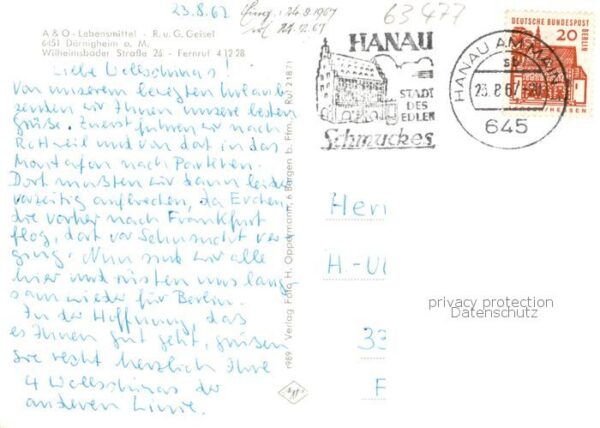 23.8.67
63477
A & O - Lebensmittel - R. u. G. Geisel
6451 Dörnigheim a. M.
Wilhelmsbader Straße 26 - Fernruf 4 12 28
Liebe Wollschinas!
Von unserem bewegten Urlaub
senden wir Ihnen unsere besten
Grüße. Zuerst fuhren wir nach
Rottweil und von dort in das
Montafon nach Partenen.
Dort mußten wir dann leider
vorzeitig aufbrechen, da Evchen
die vorher nach Frankfurt
flog, dort vor Sehnsucht ver
ging. Nun sind wir alle
hier und rüsten uns lang-
sam wieder für Berlin.
In der Hoffnung, daß
es Ihnen gut geht, grüßen
Sie recht herzlich Ihre
4 Wollschinas der
anderen Linie.
1989/ Verlag Foto H. Oppermann, 6 Bergen b. Ffm. Ruf 21871
HANAU
STADT
DES
EDLEN
Schmuckes
HANAU AM MAIN
23.8.67
645
DEUTSCHE BUNDESPOST
BERLIN
20
Herr
H.-U
33
F
privacy protection
Datenschutz